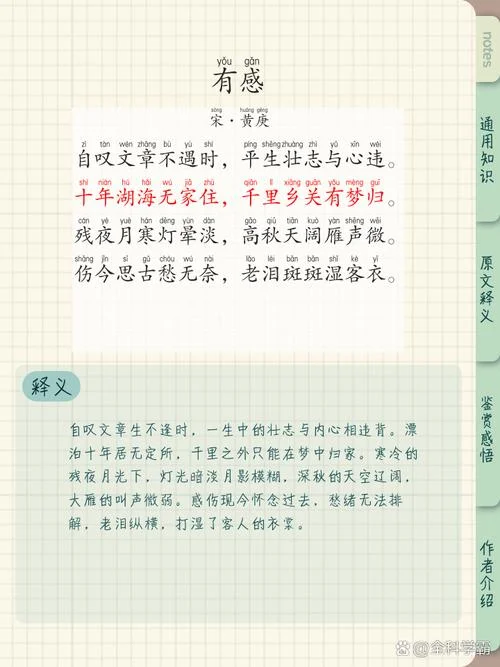 yǒu gǎn
有感
sòng huáng gēng
宋·黄庚
zì tàn wén zhāng bù yù shí píng shēng zhuàng zhì yǔ xīn wéi
自叹文章不遇时，平生壮志与心违。
shí nián hú hǎi wú jiā zhù qiān lǐ xiāng guān yǒu mèng guī
十年湖海无家住，千里乡关有梦归。
cán yè yuè hán dēng yùn dàn gāo qiū tiān kuò yàn shēng wēi
残夜月寒灯晕淡，高秋天阔雁声微。
shāng jīn sī gǔ chóu wú nài lǎo lèi bān bān shī kè yī
伤今思古愁无奈，老泪斑斑湿客衣。
释义
自叹文章生不逢时，一生中的壮志与内心相违背。漂
泊十年居无定所，千里之外只能在梦中归家。寒冷的
残夜月光下，灯光暗淡月影模糊，深秋的天空辽阔，
大雁的叫声微弱。感伤现今怀念过去，愁绪无法排
解，老泪纵横，打湿了客人的衣裳。
notes
通用知识
原文释义
鉴赏感悟
作者介绍
全科学霸